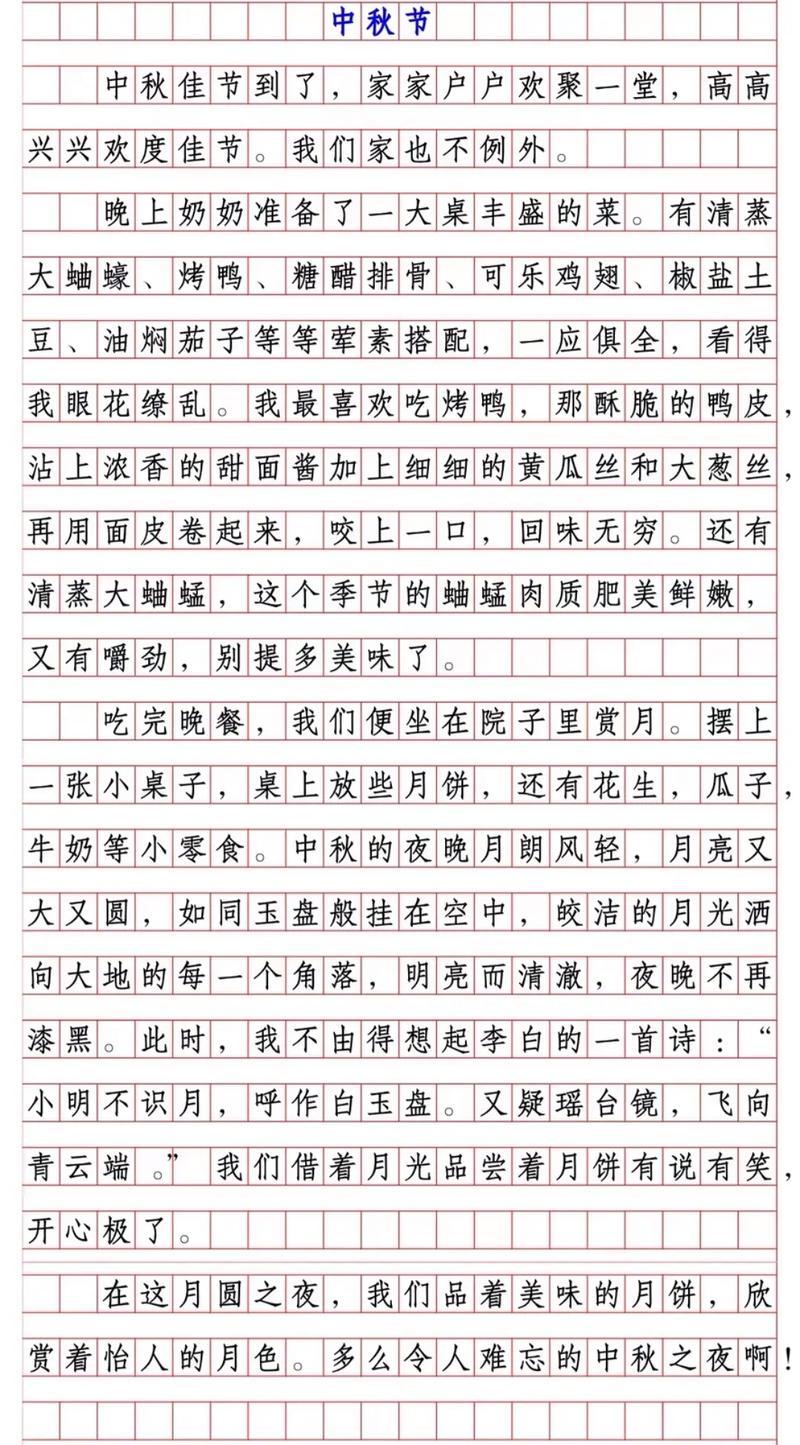 中秋节
中秋佳节到了，家家户户欢聚一堂，高高
兴兴欢度佳节。我们家也不例外。
晚上奶奶准备了一大桌丰盛的菜。有清蒸
大蛐蠔、烤鸭、糖醋排骨、可乐鸡翅、椒盐土
豆、油焖茄子等等荤素搭配，一应俱全，看得
我眼花缭乱。我最喜欢吃烤鸭，那酥脆的鸭皮，
沾上浓香的甜面酱加上细细的黄瓜丝和大葱丝，
再用面皮卷起来，咬上一口，回味无穷。还有
清蒸大蛐蜢，这个季节的蛐蜢肉质肥美鲜嫩，
又有嚼劲，别提多美味了。
吃完晚餐，我们便坐在院子里赏月。摆上
一张小桌子，桌上放些月饼，还有花生，瓜子，
牛奶等小零食。中秋的夜晚月朗风轻，月亮又
大又圆，如同玉盘般挂在空中，皎洁的月光洒
向大地的每一个角落，明亮而清澈，夜晚不再
漆黑。此时，我不由得想起李白的一首诗：“
小明不识月，呼作白玉盘。又疑瑶台镜，飞向
青云端。” 我们借着月光品尝着月饼有说有笑，
开心极了。
在这月圆之夜，我们品着美味的月饼，欣
赏着怡人的月色。多么令人难忘的中秋之夜啊！